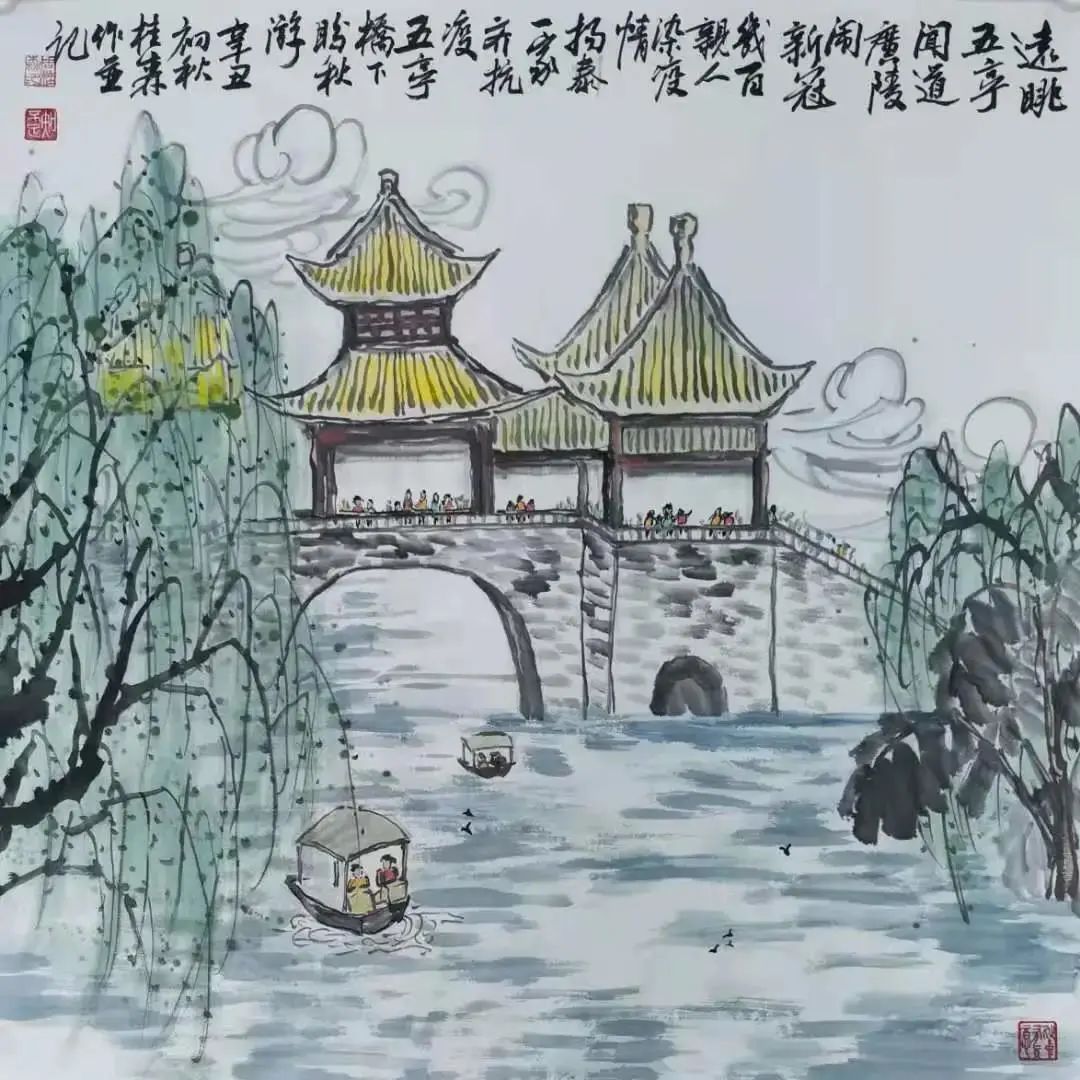 遠眺
五亭
闻道
廣陵
闹
新冠
幾百
親人
染疫
情
揚泰
一家
亦抗
疫
五亭
橋下
盼秋
游
辛丑
初秋
桂森
作並
記